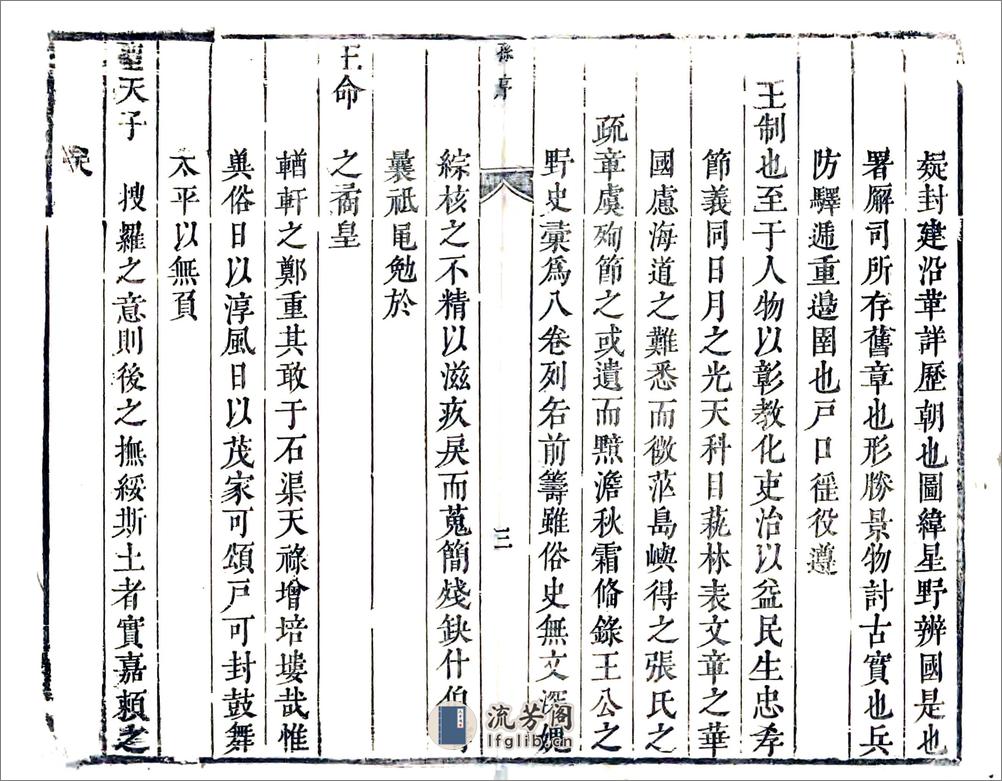 疑封建沿革詳歷朝也圖緯星野辨國是也
署廨司所存舊章也形勝景物討古實也兵
防驛遞重邊圉也戸口徭役遵
王制也至于人物以彰教化吏治以益民生忠孝
節義同日月之光天科目蓺林表文章之華
國慮海道之難悉而徵茫島嶼得之張氏之
疏章虞殉節之或遺而黯澹秋霜俻錄王公之
野史彙爲八卷列若前籌雖俗史無文深媿
三
綜核之不精以滋疚戾而蒐簡殘缺什伯
曩祇黽勉於
王命
之裔皇
輶軒之鄭重其敢于石渠天祿增培塿哉惟
異俗日以淳風日以茂家可頌戸可封鼓舞
太平以無負
聖天子
搜羅之意則後之撫綏斯土者實嘉賴之
流芳閣
lfglib.cn